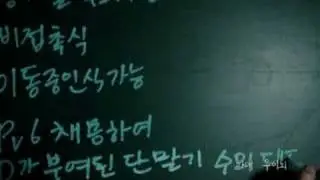 비접촉식
이동중인식가능
Pv6 채용하여
가 부여된 단말기 수요